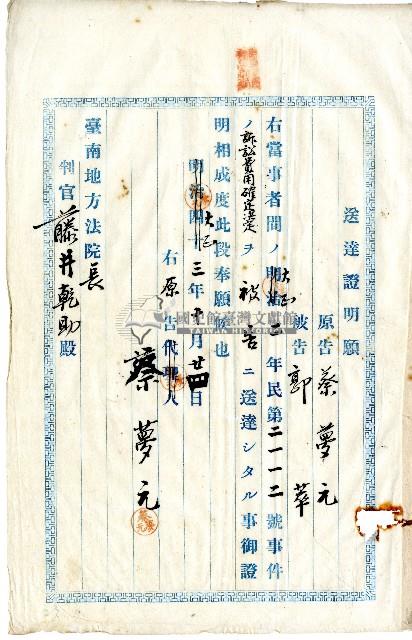 送達證明願
原告 蔡夢元
被告 郭萃
右當事者間ノ大正二年民第二一一二號事件
ノ訴訟費用確定決定ヲ被告ニ送達シタル事御證
明相成度此段奉願候也
大正三年十月廿四日
右原告代理人
蔡夢元
臺南地方法院長
判官 藤井乾助殿
國史館臺灣文獻館